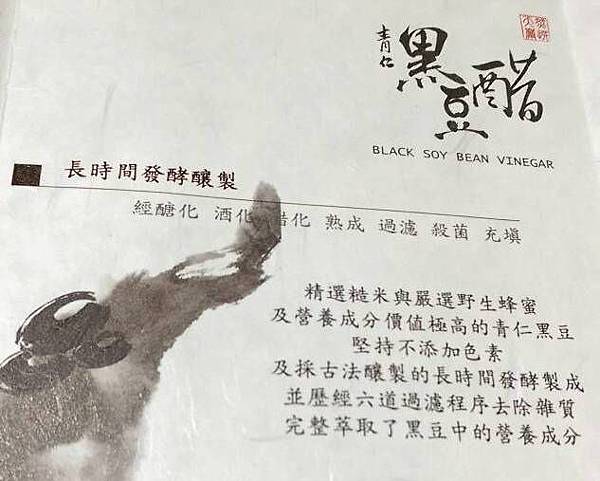 青仁
黑豆醋
BLACK SOY BEAN VINEGAR
長時間發酵釀製
經醣化 酒化 醋化 熟成 過濾 殺菌 充填
精選糙米與嚴選野生蜂蜜
及營養成分價值極高的青仁黑豆
堅持不添加色素
及採古法釀製的長時間發酵製成
並歷經六道過濾程序去除雜質
完整萃取了黑豆中的營養成分